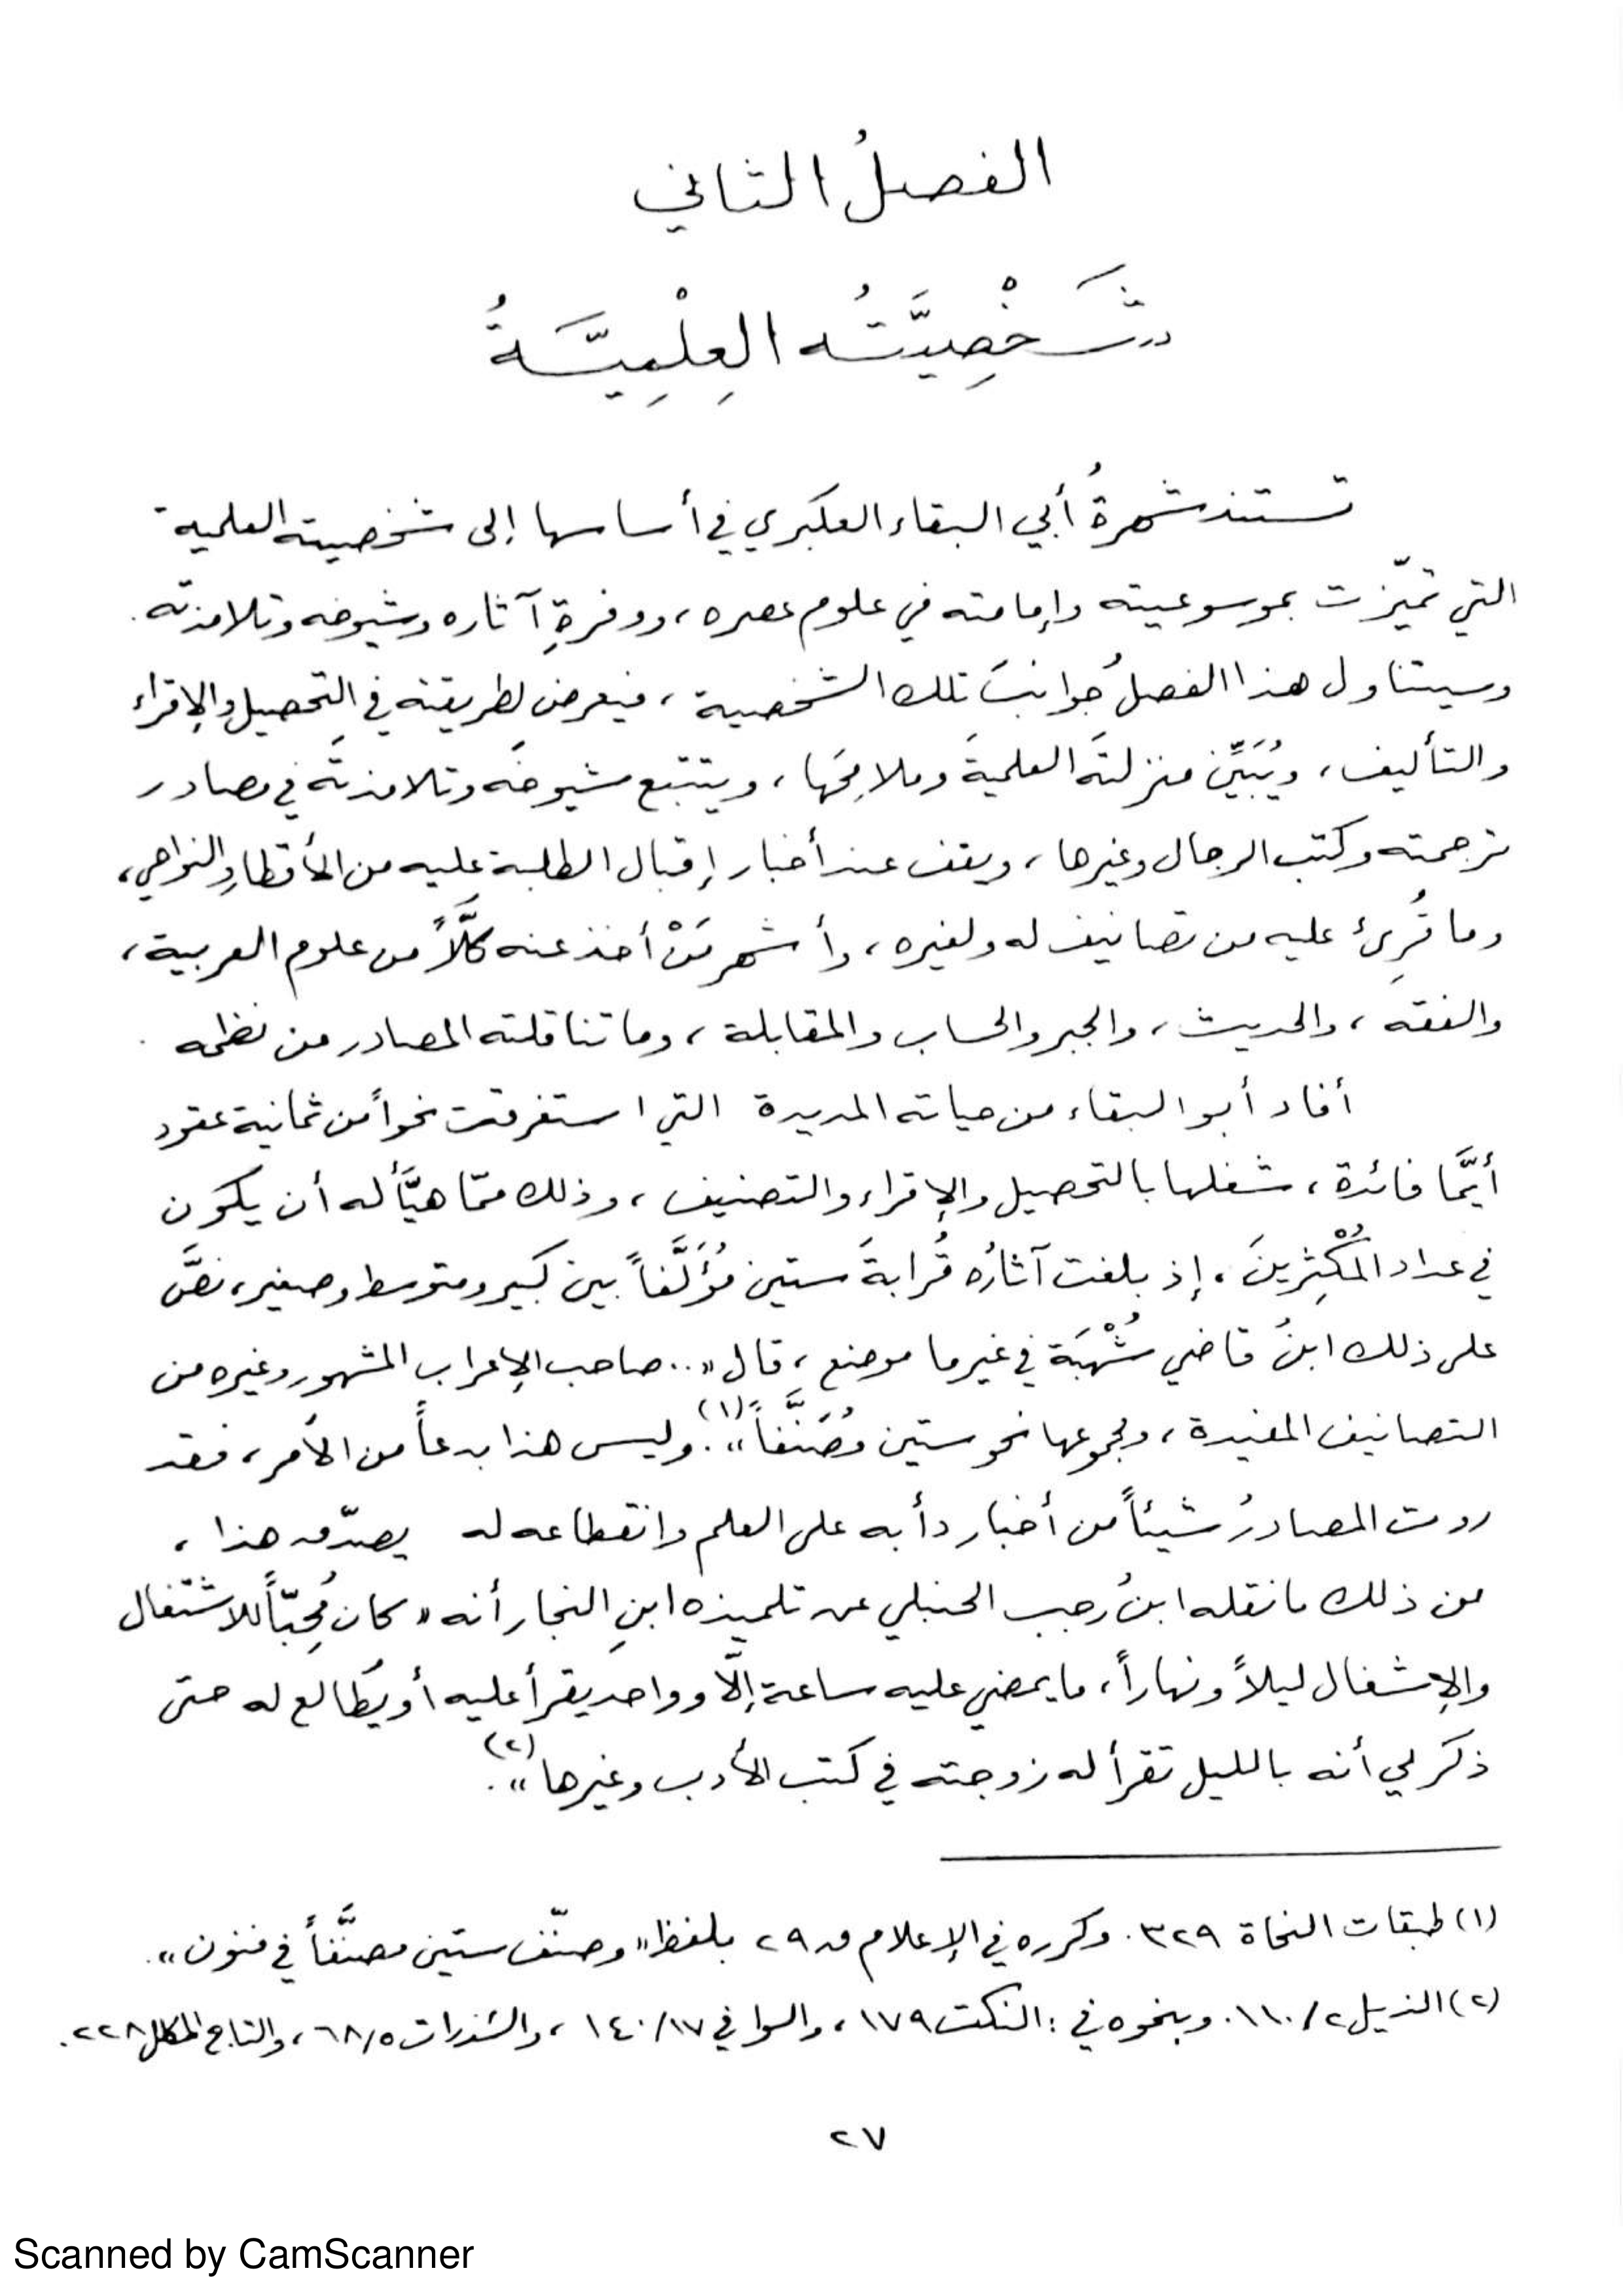 الفصلُ الثاني
شَخْصِيَّتُه العِلْمِيَّةُ
تستند شهرةُ أبي البقاء العكبري في أساسها إلى شخصيته العلمية
التي تميّزت بموسوعيته وإمامته في علوم عصره، ووفرةِ آثاره وشيوخه وتلامذته.
وسيتناول هذا الفصلُ جوانبَ تلك الشخصية، فيعرض لطريقته في التحصيلِ والإقراء
والتأليف، ويُبَيِّن منزلتَه العلميةَ وملامِحَها، ويتتبع شيوخَه وتلامذتَه في مصادر
ترجمته وكتب الرجال وغيرها، ويقف عند أخبار إقبال الطلبة عليه من الأقطارِ والنواحي،
وما قُرِئ عليه من تصانيف له ولغيره، وأشهر مَنْ أخذ عنه كلَّاً من علوم العربية،
والفقه، والحديث، والجبر والحساب والمقابلة، وما تناقلته المصادر من نظمه.
أفاد أبو البقاء من حياته المديدة التي استغرقت نحواً من ثمانية عقود
أيَّما فائدة، شغلها بالتحصيل والإقراء والتصنيف، وذلك ممّا هيَّأ له أن يكون
في عداد المُكْثِرينَ، إذ بلغت آثارُه قُرابةَ ستين مُؤَلَّفاً بين كبير ومتوسط وصغير، نصَّ
على ذلك ابنُ قاضي شُهْبَة في غير ما موضع، قال «.. صاحب الإعراب المشهور وغيره من
التصانيف المفيدة، ومجموعها نحو ستين مُصَنَّفاً»(١). وليس هذا بدعاً من الأمر، فقد
روت المصادرُ شيئاً من أخبار دأبه على العلم وانقطاعه له يصدّق هذا،
من ذلك ما نقله ابنُ رجب الحنبلي عن تلميذه ابنِ النجار أنه «كان مُحِبّاً للاشتغال
والإشغال ليلاً ونهاراً، ما يمضي عليه ساعة إلّا وواحد يقرأ عليه أو يُطالع له حتى
ذكر لي أنه بالليل تقرأ له زوجته في كتب الأدب وغيرها»(٢).
(١) طبقات النحاة ٣٢٩. وكرره في الإعلام ق ٢٩ بلفظ «وصنّف ستين مصنَّفاً في فنون».
(٢) الذيل ١١٠/٢. وبنحوه في: النكت ١٧٩، والوافي ١٤٠/١٧، والشذرات ٦٨/٥، والتاج المكلل ٢٢٨.
٢٧
Scanned by CamScanner